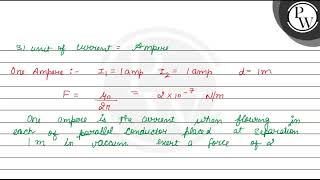 PW
SI unit of current = Ampere
One Ampere :- I₁ = 1 amp I₂ = 1 amp d = 1m
F = μ₀/2π = 2 × 10⁻⁷ N/m
One ampere is the current when flowing in
each of parallel conductor placed at separation
1 m in vaccum exert a force of 2